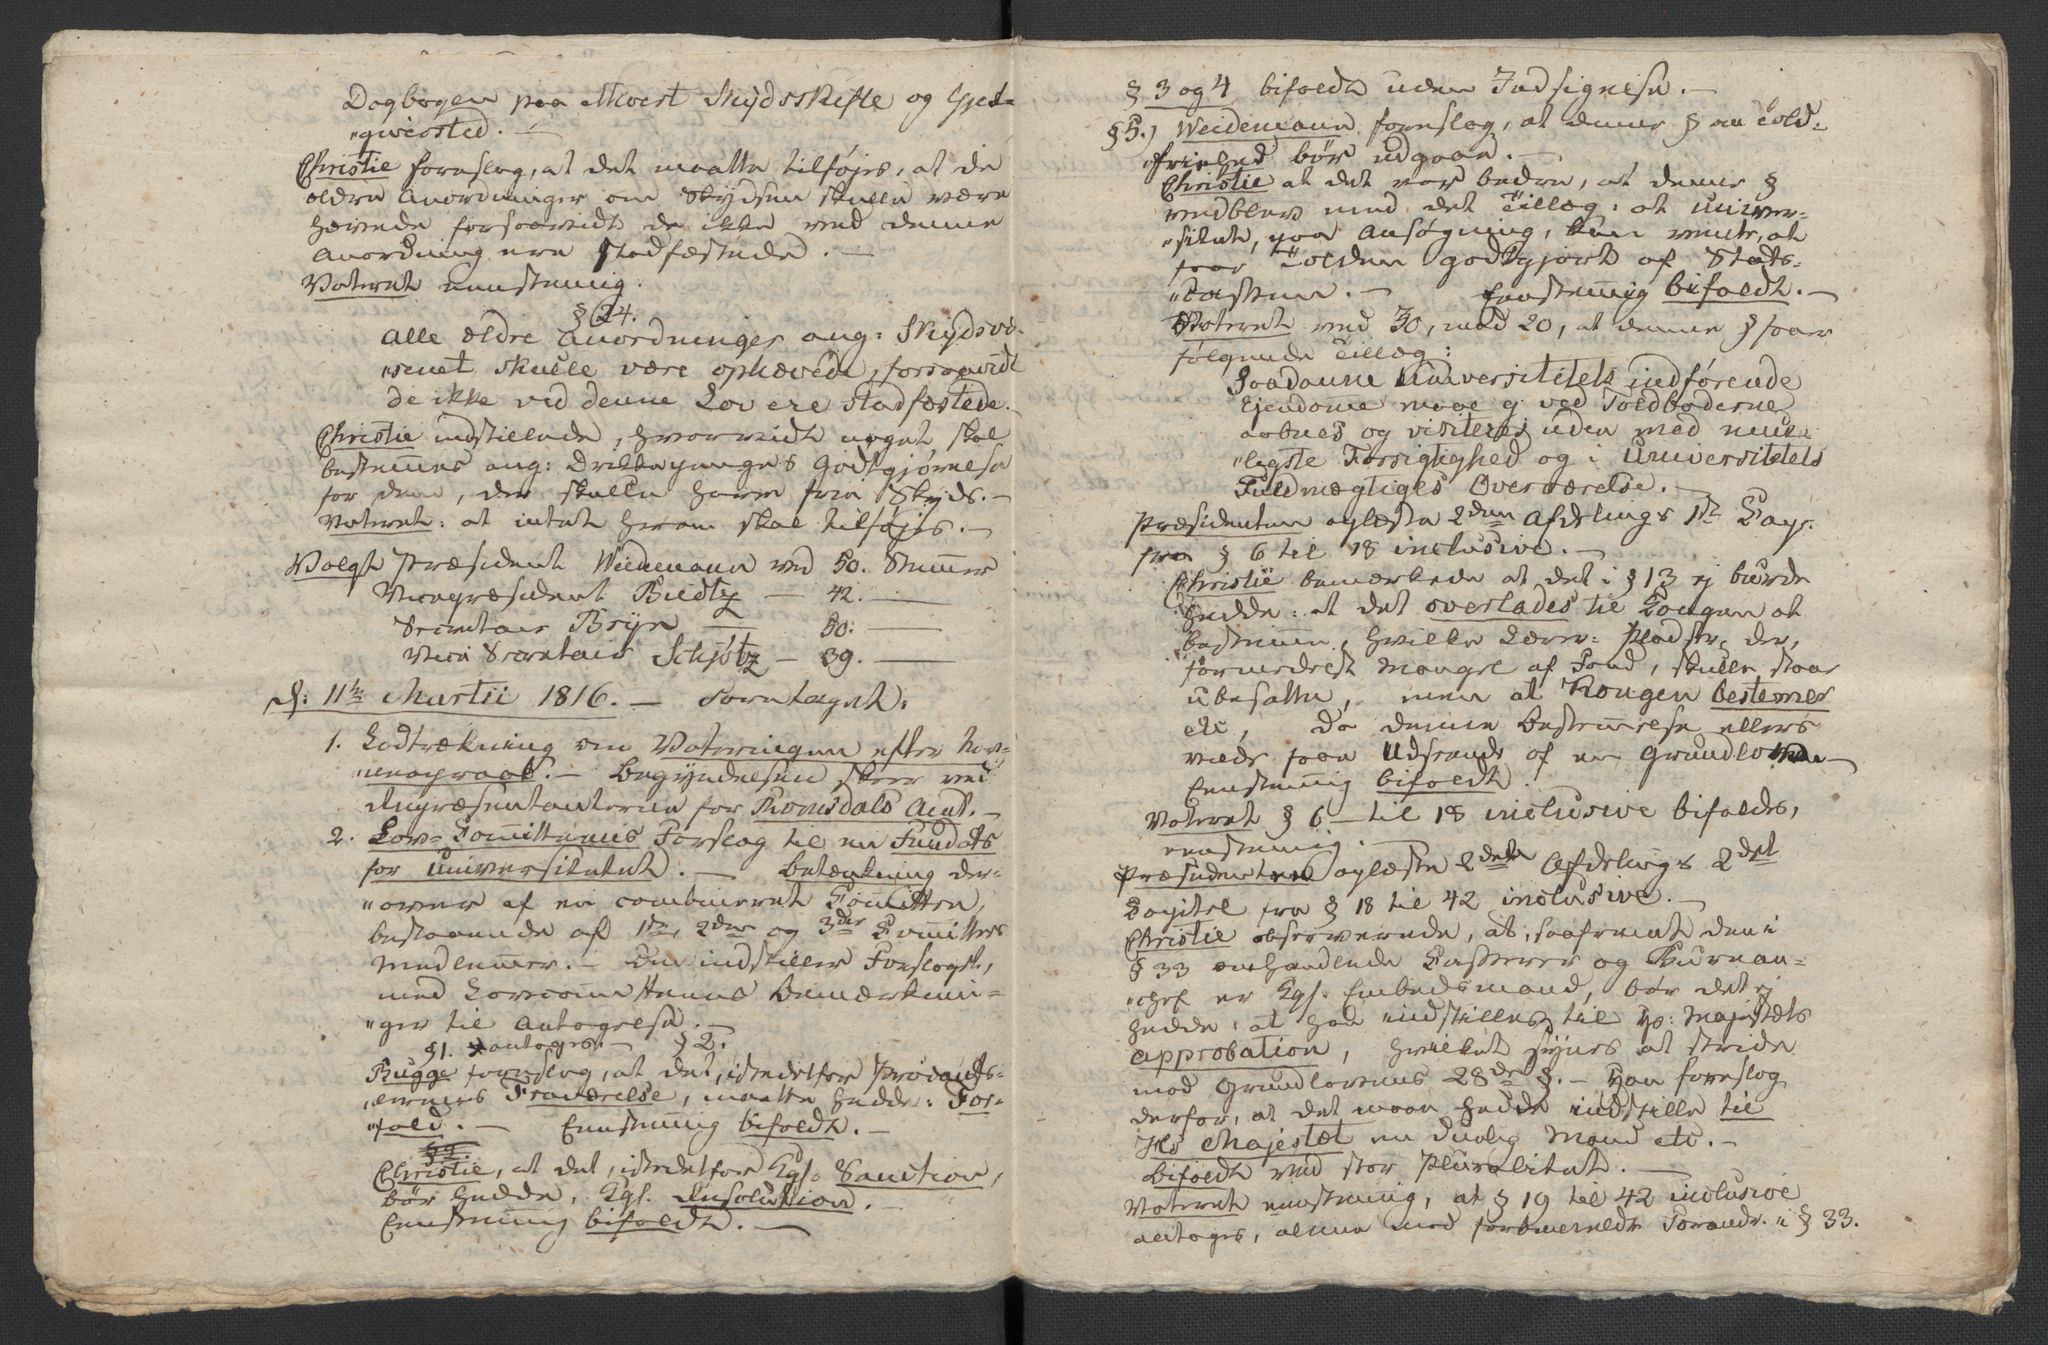 Dagbogen paa Hvert Skydsskifte og Gjest-
"giversted. —
Christie foreslog, at det maatte tilføjes, at de
ældre Anordninger om Skydsen skulle være
hævede forsaavidt de ikke ved denne
Anordning ere stadfæstede. —
Voteret eenstemig.
§ 24.
Alle ældre Anordninger ang: Skydsvæ-
"senet skulle være ophævede, forsaavidt
de ikke ved denne Lov ere stadfæstede.
Christie indstillede, hvorvidt noget skal
bestemes ang: Drikkepenges Godtgjørelse
for dem, der skulle have frie Skyds. —
Voteret: at intet herom skal tilføjes. —
Valgt Præsident Weidemann ved 50. Stemmer
Vicepræsident Riedtz — 42. —
Secretair Bryn — 50. —
Vice Secretair Schjøtz — 39. —
d: 11te Martii 1816. — Foretaget:
1. Lodtrækning om Voteringen efter Nav-
"neopraab. — Begyndelsen skeer ved
Repræsentanterne for Romsdals Amt. —
2. Lov-Comitteens Forslag til en Fundats
for Universitetet. — Betænkning der-
"over af en combineret Comittee,
bestaaende af 1ste, 2den og 3die Comittees
Medlemmer. — Den indstiller Forslaget,
med Lovcomitteens Bemærknin-
"ger til Antagelse. —
§1. antoges. — § 2.
Bugge foreslog, at det, istedetfor Prodants-
"lernes Fraværelse, maatte hedde: For-
"fald. — Eenstemig bifaldt. —
Christie, at det, istedetfor Kgl. Sanction,
bør hedde, Kgl. Resolution. —
Eenstemig bifaldt. —
§ 3 og 4 bifaldt uden Indsigelse. —
§5.) Weidemann foreslog, at denne § om Told-
"friehed bør udgaae. —
Christie at det var bedre, at denne §
vedblev med det Tillæg: at Univer-
"sitetet, paa Ansøgning, kan vente, at
faae Tolden godtgjort af Stats-
"Cassen. — Eenstemig bifaldt. —
Voteret ved 30, mod 20, at denne § faaer
følgende Tillæg:
Saadanne Universitetets indførende
Ejendomme maae ej ved Toldboderne
aabnes og visiteres uden med muu-
"ligste Forsigtighed og i Universitetets
Fuldmægtiges Overværelse. —
Præsidenten oplæste 2den Afdelings 1ste Cap:
fra § 6 til 18 inclusive. —
Christie bemærkede at det i § 13 ej burde
hedde: at det overlades til Kongen at
bestemme, hvilke Lærer-Pladse, der,
formedelst Mangel af Fond, skulle staae
ubesatte, men at Kongen bestemer
etc, da denne Bestemmelse ellers
vilde faae Udseende af en Grundlov. —
Eenstemig bifaldt.
Voteret § 6 — til 18 inclusive bifaldes,
eenstemig. —
Præsidenten oplæste 2den Afdelings 2det
Capitel fra § 18 til 42 inclusive. —
Christie observerede, at, saafremt den i
§ 33 omhandlede Casserer og Bureau-
"chef er Kgl. Embedsmand, bør det ej
hedde, at han indstilles til Hs: Majestæts
Approbation, hvilket synes at stride
mod Grundlovens 28de §. — Han foreslog
derfor, at det maae hedde indstille til
Hs Majestæt en duelig Mand etc. —
Bifaldt ved stor Pluralitet. —
Voteret eenstemig, at § 19 til 42 inclusive
antoges, alene med forbemeldte Forandr. i § 33.